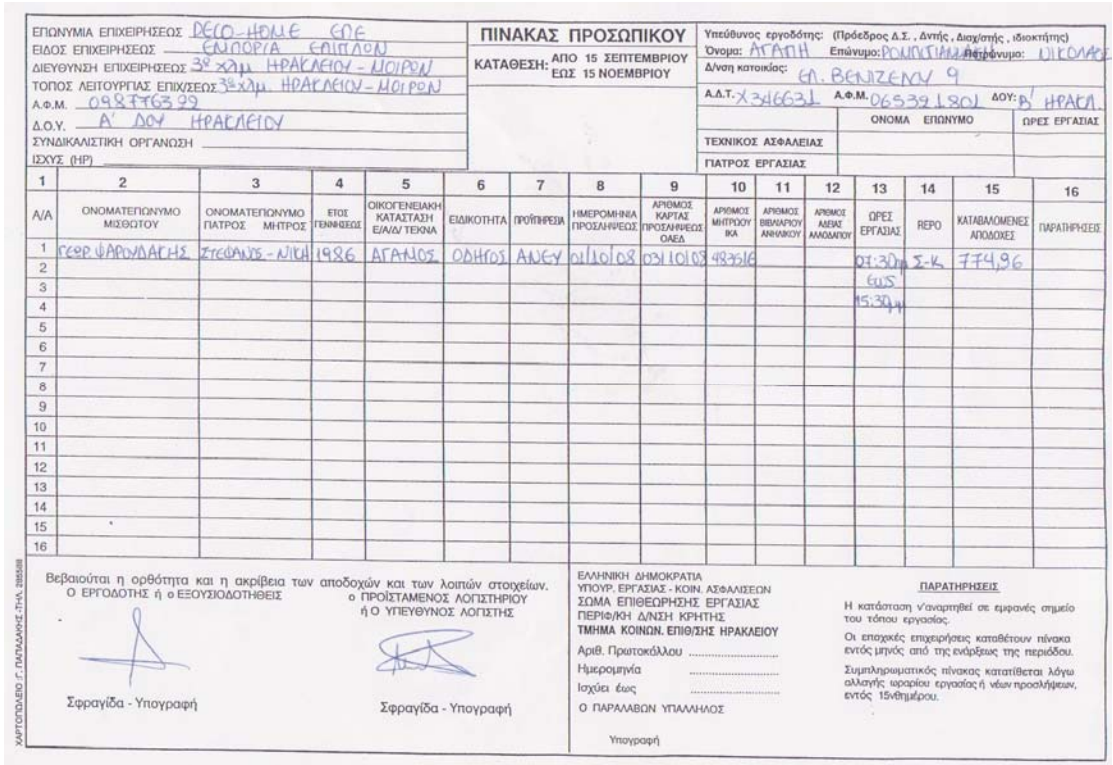 ΕΠΩΝΥΜΙΑ ΕΠΙΧΕΙΡΗΣΕΩΣ DECO-HOME ΕΠΕ
ΕΙΔΟΣ ΕΠΙΧΕΙΡΗΣΕΩΣ ΕΜΠΟΡΙΑ ΕΠΙΠΛΩΝ
ΔΙΕΥΘΥΝΣΗ ΕΠΙΧΕΙΡΗΣΕΩΣ 3ο χλμ ΗΡΑΚΛΕΙΟΥ - ΜΟΙΡΩΝ
ΤΟΠΟΣ ΛΕΙΤΟΥΡΓΙΑΣ ΕΠΙΧ/ΣΕΩΣ 3ο χλμ. ΗΡΑΚΛΕΙΟΥ - ΜΟΙΡΩΝ
Α.Φ.Μ. 098776399
Δ.Ο.Υ. Α' ΔΟΥ ΗΡΑΚΛΕΙΟΥ
ΣΥΝΔΙΚΑΛΙΣΤΙΚΗ ΟΡΓΑΝΩΣΗ
ΙΣΧΥΣ (HP)
ΠΙΝΑΚΑΣ ΠΡΟΣΩΠΙΚΟΥ
ΚΑΤΑΘΕΣΗ: ΑΠΟ 15 ΣΕΠΤΕΜΒΡΙΟΥ
ΕΩΣ 15 ΝΟΕΜΒΡΙΟΥ
Υπεύθυνος εργοδότης: (Πρόεδρος Δ.Σ. , Δντής , Διαχ/στής , ιδιοκτήτης)
Όνομα: ΑΓΑΠΗ Επώνυμο: Πατρώνυμο: ΝΙΚΟΛΑΟΣ
Δ/νση κατοικίας: ΕΛ. ΒΕΝΙΖΕΛΟΥ 9
Α.Δ.Τ. Χ346631 Α.Φ.Μ. 065391801 ΔΟΥ: Β' ΗΡΑΚΛ.
ΟΝΟΜΑ ΕΠΩΝΥΜΟ ΩΡΕΣ ΕΡΓΑΣΙΑΣ
ΤΕΧΝΙΚΟΣ ΑΣΦΑΛΕΙΑΣ
ΓΙΑΤΡΟΣ ΕΡΓΑΣΙΑΣ
1 2 3 4 5 6 7 8 9 10 11 12 13 14 15 16
Α/Α
ΟΝΟΜΑΤΕΠΩΝΥΜΟ
ΜΙΣΘΩΤΟΥ
ΟΝΟΜΑΤΕΠΩΝΥΜΟ
ΠΑΤΡΟΣ ΜΗΤΡΟΣ
ΕΤΟΣ
ΓΕΝΝΗΣΕΩΣ
ΟΙΚΟΓΕΝΕΙΑΚΗ
ΚΑΤΑΣΤΑΣΗ
Ε/Α/Δ/ ΤΕΚΝΑ
ΕΙΔΙΚΟΤΗΤΑ
ΠΡΟΫΠΗΡΕΣΙΑ
ΗΜΕΡΟΜΗΝΙΑ
ΠΡΟΣΛΗΨΕΩΣ
ΑΡΙΘΜΟΣ
ΚΑΡΤΑΣ
ΠΡΟΣΛΗΨΕΩΣ
ΟΑΕΔ
ΑΡΙΘΜΟΣ
ΜΗΤΡΩΟΥ
ΙΚΑ
ΑΡΙΘΜΟΣ
ΒΙΒΛΙΑΡΙΟΥ
ΑΝΗΛΙΚΟΥ
ΑΡΙΘΜΟΣ
ΑΔΕΙΑΣ
ΑΛΛΟΔΑΠΟΥ
ΩΡΕΣ
ΕΡΓΑΣΙΑΣ
ΡΕΡΟ
ΚΑΤΑΒΑΛΟΜΕΝΕΣ
ΑΠΟΔΟΧΕΣ
ΠΑΡΑΤΗΡΗΣΕΙΣ
1 ΓΕΩΡ. ΨΑΡΟΥΔΑΚΗΣ ΣΤΕΦΑΝΟΣ - ΝΙΚΗ 1986 ΑΓΑΜΟΣ ΟΔΗΓΟΣ ΑΝΕΥ 01/10/08 03/10/08
2 07:30π Σ-Κ 774,96
3 εως
4 15:30μμ
5
6
7
8
9
10
11
12
13
14
15
16
Βεβαιούται η ορθότητα και η ακρίβεια των αποδοχών και των λοιπών στοιχείων.
Ο ΕΡΓΟΔΟΤΗΣ ή ο ΕΞΟΥΣΙΟΔΟΤΗΘΕΙΣ
ο ΠΡΟΪΣΤΑΜΕΝΟΣ ΛΟΓΙΣΤΗΡΙΟΥ
ή Ο ΥΠΕΥΘΥΝΟΣ ΛΟΓΙΣΤΗΣ
Σφραγίδα - Υπογραφή
Σφραγίδα - Υπογραφή
ΕΛΛΗΝΙΚΗ ΔΗΜΟΚΡΑΤΙΑ
ΥΠΟΥΡ. ΕΡΓΑΣΙΑΣ - ΚΟΙΝ. ΑΣΦΑΛΙΣΕΩΝ
ΣΩΜΑ ΕΠΙΘΕΩΡΗΣΗΣ ΕΡΓΑΣΙΑΣ
ΠΕΡΙΦ/ΚΗ Δ/ΝΣΗ ΚΡΗΤΗΣ
ΤΜΗΜΑ ΚΟΙΝΩΝ. ΕΠΙΘ/ΣΗΣ ΗΡΑΚΛΕΙΟΥ
Αριθ. Πρωτοκόλλου
Ημερομηνία
Ισχύει έως
Ο ΠΑΡΑΛΑΒΩΝ ΥΠΑΛΛΗΛΟΣ
Υπογραφή
ΠΑΡΑΤΗΡΗΣΕΙΣ
Η κατάσταση ν'αναρτηθεί σε εμφανές σημείο
του τόπου εργασίας.
Οι εποχικές επιχειρήσεις καταθέτουν πίνακα
εντός μηνός από της ενάρξεως της περιόδου.
Συμπληρωματικός πίνακας κατατίθεται λόγω
αλλαγής ωραρίου εργασίας ή νέων προσλήψεων,
εντός 15νθημέρου.
ΧΑΡΤΟΠΩΛΕΙΟ :Γ. ΠΑΠΑΔΑΚΗΣ -ΤΗΛ. 285588